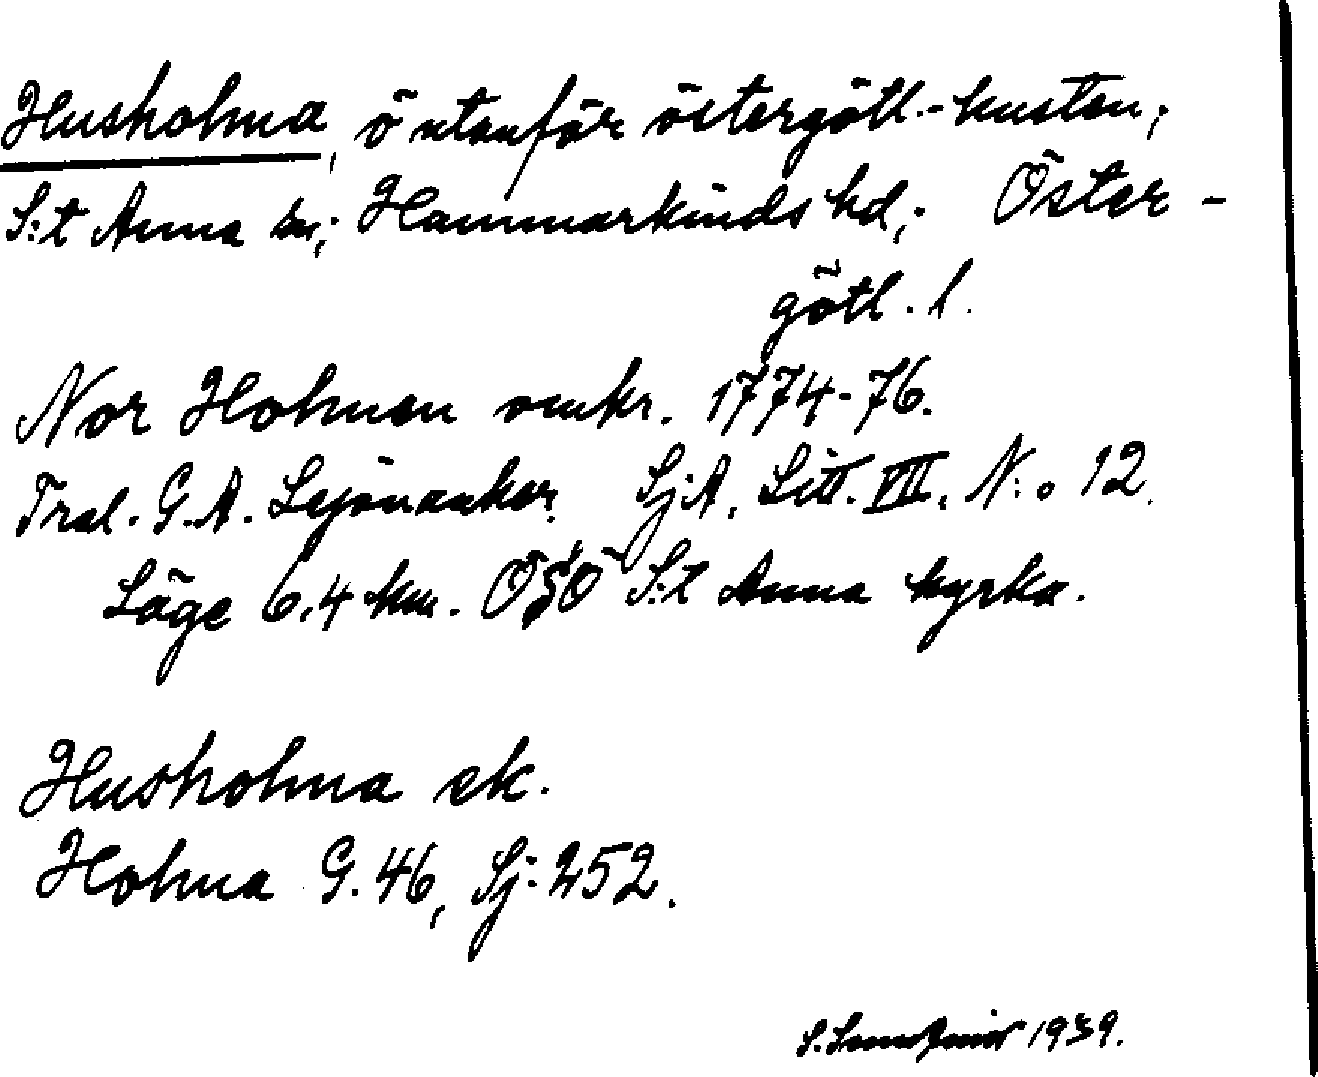 Husholma, ö utanför östergötl.-kusten;
S:t Anna sn; Hammarkinds hd; Öster-
götl. l.
Nor Holmen omkr. 1774-76.
Tral. G.A. Lejonanker. Sj:A. Litt. VII. N:o 12.
Läge 6.4 km. OSO S:t Anna kyrka.
Husholma ek.
Holma G. 46, Sj: 252.
S. 1939.